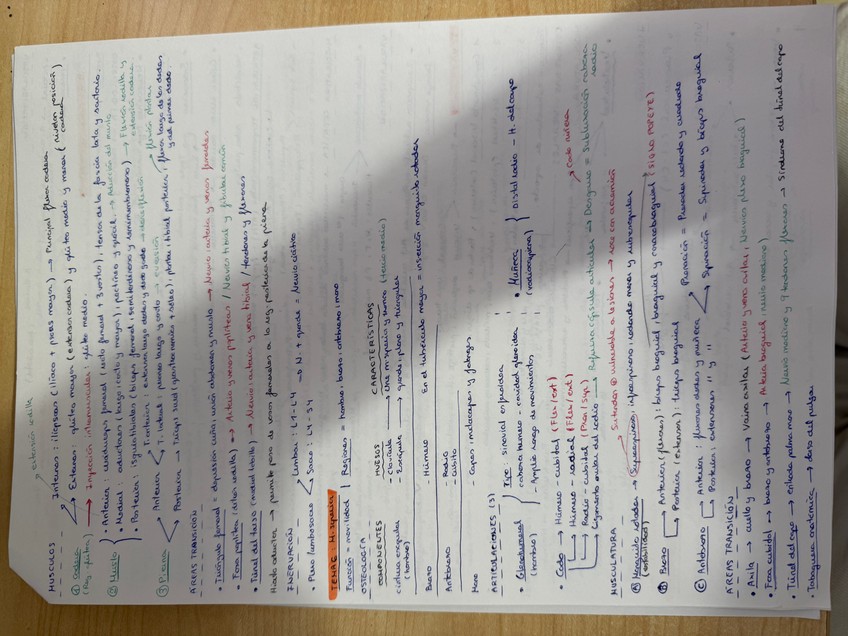 extensión rodilla
MÚSCULOS
① Cadera → Internos: iliopsoas (ilíaco + psoas mayor) → Principal flexor cadera
(Reg. glútea) → Externos: glúteo mayor (extensor cadera) y glúteo medio y menor (nivelan posición cadera)
→ Inyección intramuscular: glúteo medio.
② Muslo
• Anterior: cuádriceps femoral (recto femoral + 3 vastos), tensor de la fascia lata y sartorio.
• Medial: aductores (largo, corto y mayor), pectíneo y grácil → Aducción del muslo
• Posterior: isquiotibiales (bíceps femoral, semitendinoso y semimembranoso) → Flexión rodilla y extensión cadera
③ Pierna → Anterior → T. anterior: extensor largo dedos y dedo gordo → dorsiflexión
T. lateral: peroneo largo y corto → eversión
Posterior → Tríceps sural (gastrocnemio + sóleo), plantar, tibial posterior, flexor largo de los dedos y del primer dedo → flexión plantar
ÁREAS TRANSICIÓN
• Triángulo femoral = depresión cutá, unión abdomen y muslo → Nervio, arteria y vena femorales
• Fosa poplítea (detrás rodilla) → Arteria y venas poplíteas / Nervios tibial y fibular común
• Túnel del tarso (medial tobillo) → Nervio, arteria y vena tibial / tendones y flexores
Hiato aductor → permite paso de vasos femorales a la reg. posterior de la pierna
INERVACIÓN
• Plexo lumbosacro → Lumbar: L1-L4
Sacro: L4-S4 → N. + grande = Nervio ciático
TEMA 6: M. superior
Función = movilidad | Regiones = hombro, brazo, antebrazo, mano
OSTEOLOGÍA
COMPONENTES HUESOS CARACTERÍSTICAS
Cintura escapular - Clavícula → Une m. superior y tronco (tercio medio)
(hombro) - Escápula → grande, plano y triangular
Brazo - Húmero En el tubérculo mayor = inserción manguito rotador
Antebrazo - Radio
- Cúbito
Mano - Carpos, metacarpos y falanges
ARTICULACIONES (3)
• Glenohumeral Tipo: sinovial esferoidea
(hombro) - cabeza húmero - cavidad glenoidea
- Amplio rango de movimientos
• Muñeca Distal radio - H. del carpo
(radiocarpiana)
• Codo → Húmero - cubital (Flex/ext)
→ Húmero - radial (Flex/ext)
→ Radio - cubital (Pron/Sup) → Codo niñera
→ Ligamento anular del radio → Refuerza cápsula articular → Desgarro = Subluxación cabeza radio
MUSCULATURA
Ⓐ Manguito rotador → Supraespinoso, infraespinoso, redondo menor y subescapular
(estabilizador) → Sustrato vulnerable a lesiones → roce con acromion
Ⓑ Brazo → Anterior (flexores): bíceps braquial, braquial y coracobraquial (SIGNO POPEYE)
→ Posterior (extensor): tríceps braquial
Ⓒ Antebrazo → Anterior: flexores dedos y muñeca → Pronación = Pronador redondo y cuadrado
→ Posterior: extensores " y " → Supinación = Supinador y bíceps braquial
ÁREAS TRANSICIÓN
• Axila → cuello y brazo → Vaina axilar (Arteria y vena axilar, Nervios plexo braquial)
• Fosa cubital → brazo y antebrazo → Arteria braquial, nervio mediano
• Túnel del carpo → entrada palma mano → Nervio mediano y 9 tendones flexores → Síndrome del túnel del carpo
• Tabaquera anatómica → dorso del pulgar